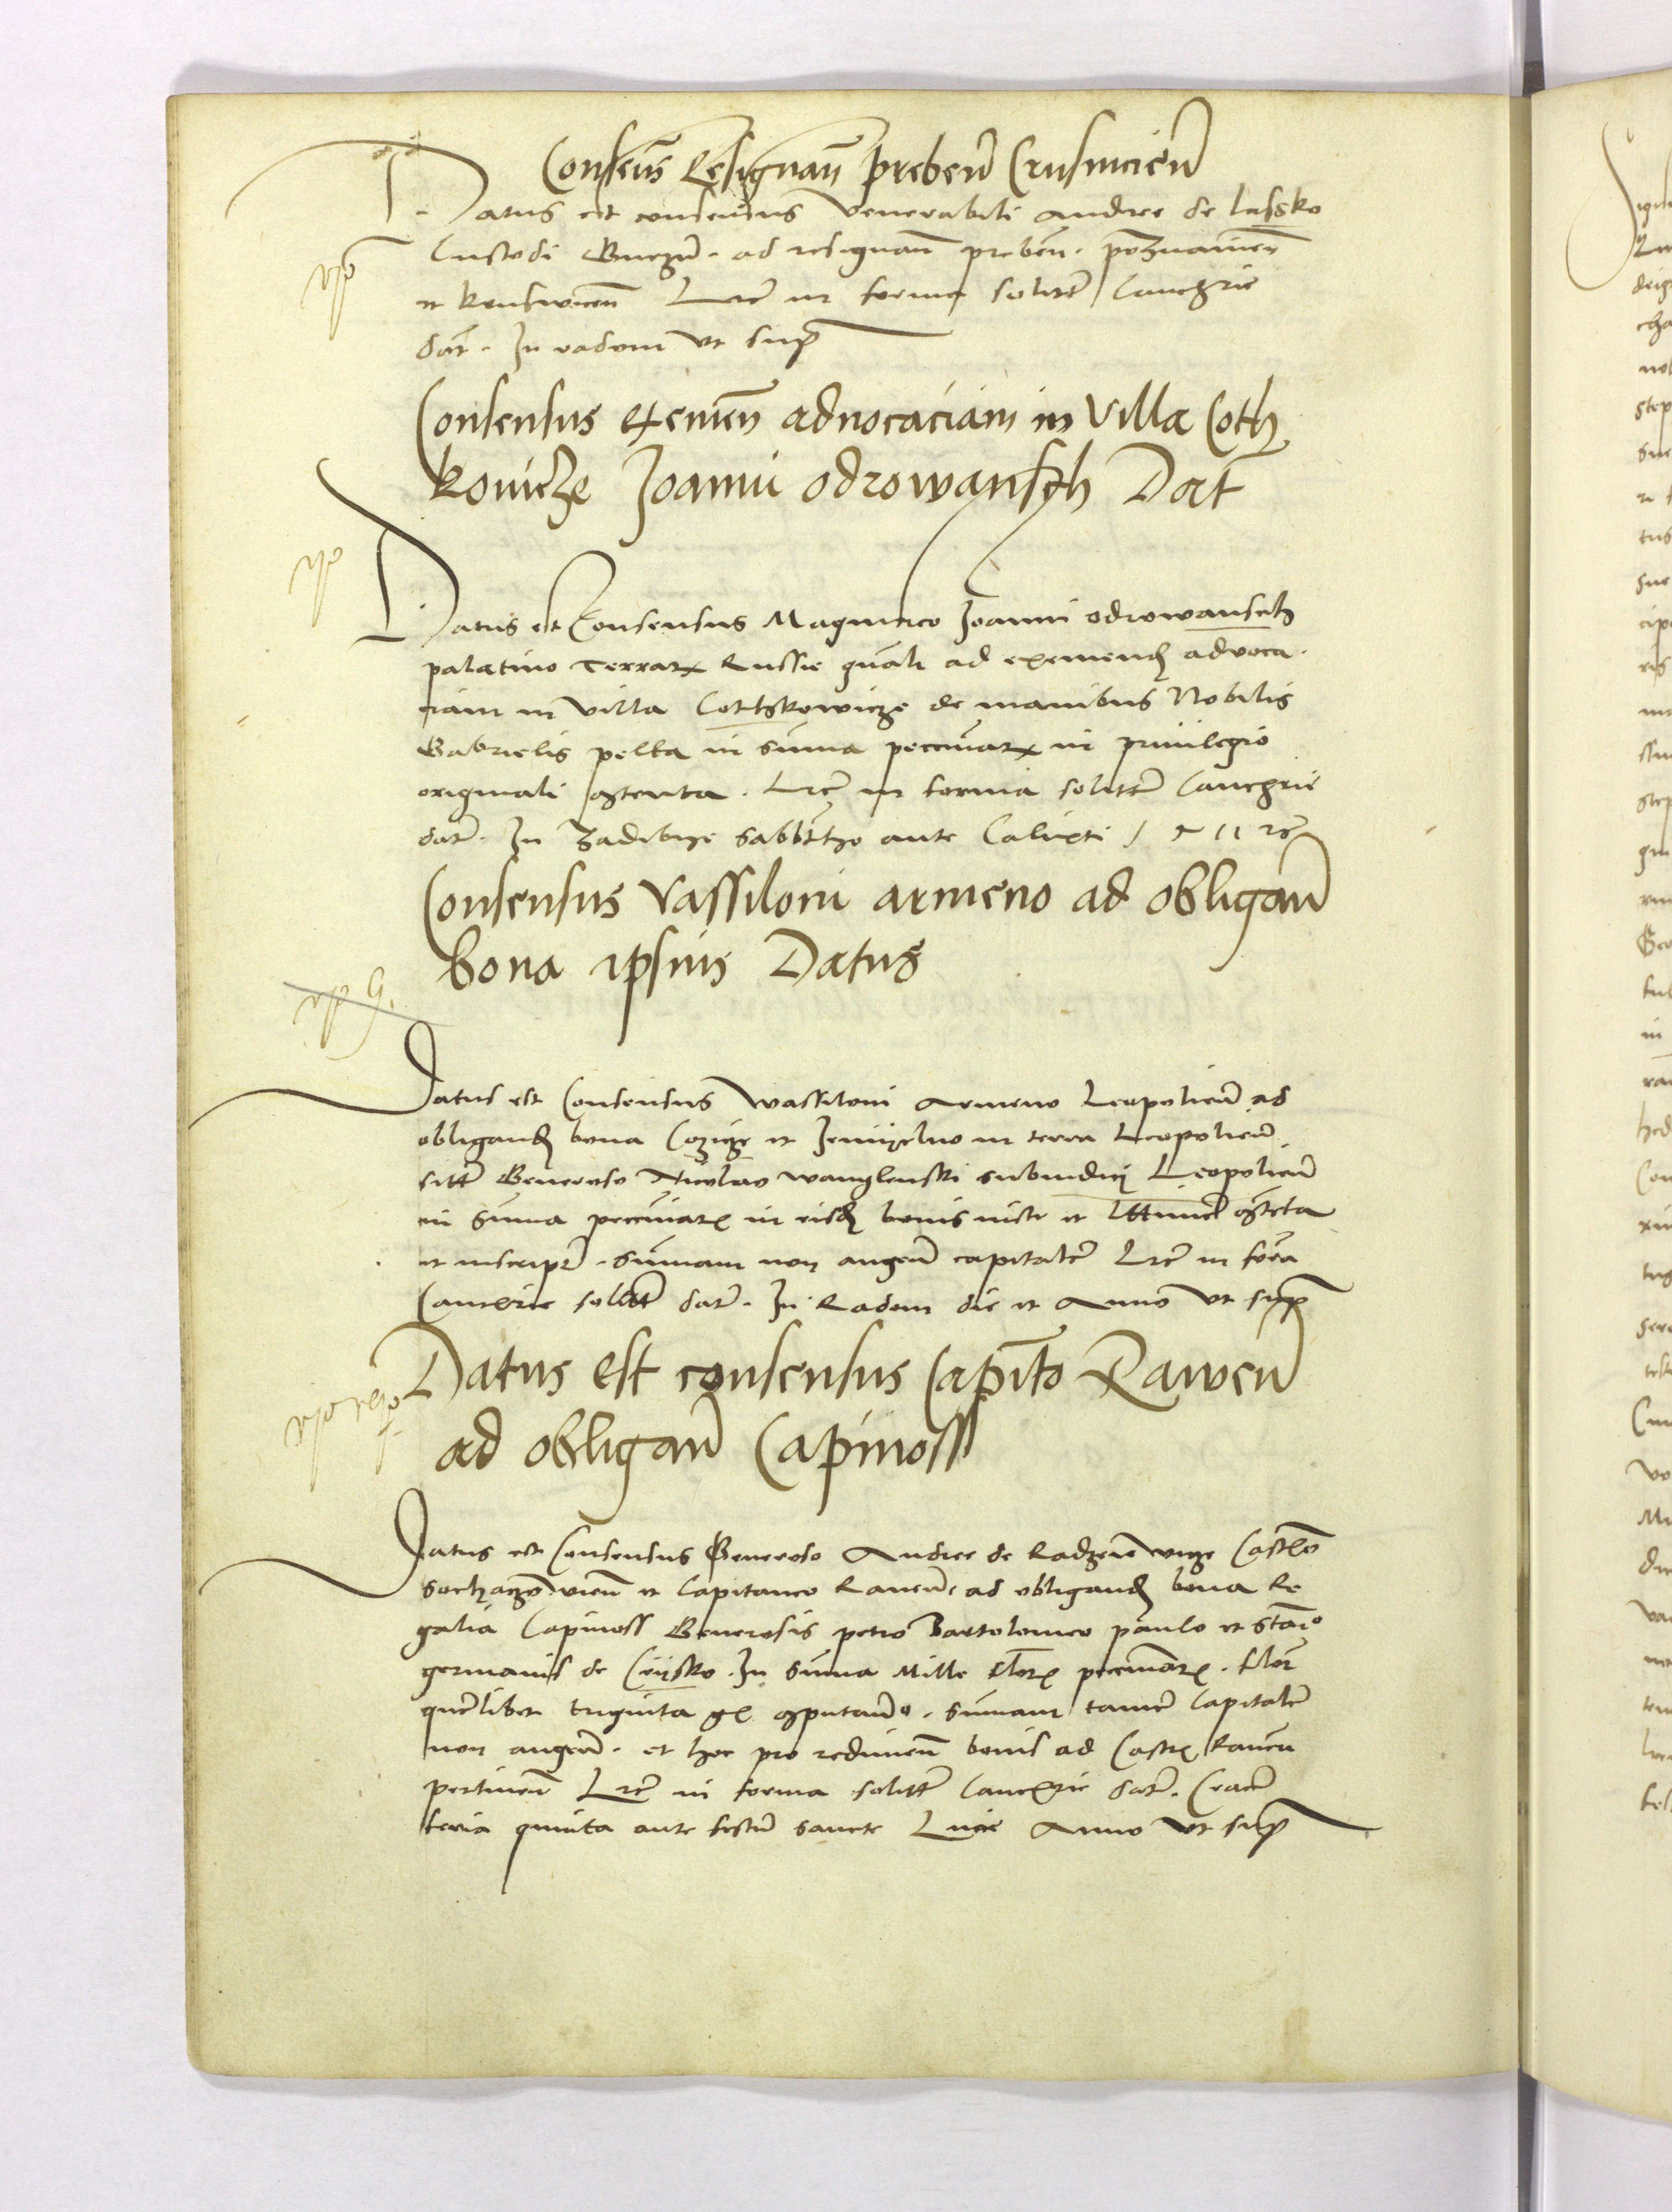 Consens Resignan preben Crusvicien
Datus est consensus venerabili Andree de lassko
Custodi Gnezn. ad resignan preben. poznanien
et Krusvicen Lre in forma solite Cancgrie
dat. In radom ut sup
Consensus exemen advocaciam in Villa Coth
kovicze Joanni odrowansch Dat
Datus est Consensus Magnifico Joanni odrowansch
palatino Terrarx Russie gnali ad exemend advoca
ciam in villa Cothkowicze de manibus Nobilis
Gabrielis pelka in suma pecuniarx in privilegio
originali gtenta. Lre in forma solite Cancgrie
dat. In sabbto ante Calixti
Consensus Vassiloni armeno ad obligan
bona ipsius Datus
Datus est Consensus Wassiloni Armeno Leopolien ad
obligand bona et in terra Leopolien
sitt Generoso Nicolao Wanglenski subiudici Leopolien
in suma pecuniar in eisd bonis iuste et lttime gtcta
et inscript. sumam non augen capitale Lre in forma
Cancxrie solitt dat. In Radom die et Anno ut sup
Datus est consensus Capito Rawen
ad obligan Capinoss
Datus est Consensus Generoso Andree de Castlo
Sochaczovien et Capitaneo Raven. ad obligand bona Re
galia Capinoss Generosis petro Bartolomeo paulo et Stano
germanis de . In suma Mille flor pecuniar. flor
quelibet triginta gr gputando. sumam tame Capitale
non augen. et hoc pro redimen bonis ad Castr Raven
pertinen Lre in forma solitt Cancxrie dat. Crace
feria quinta ante festu sancte Lucie Anno ut sup